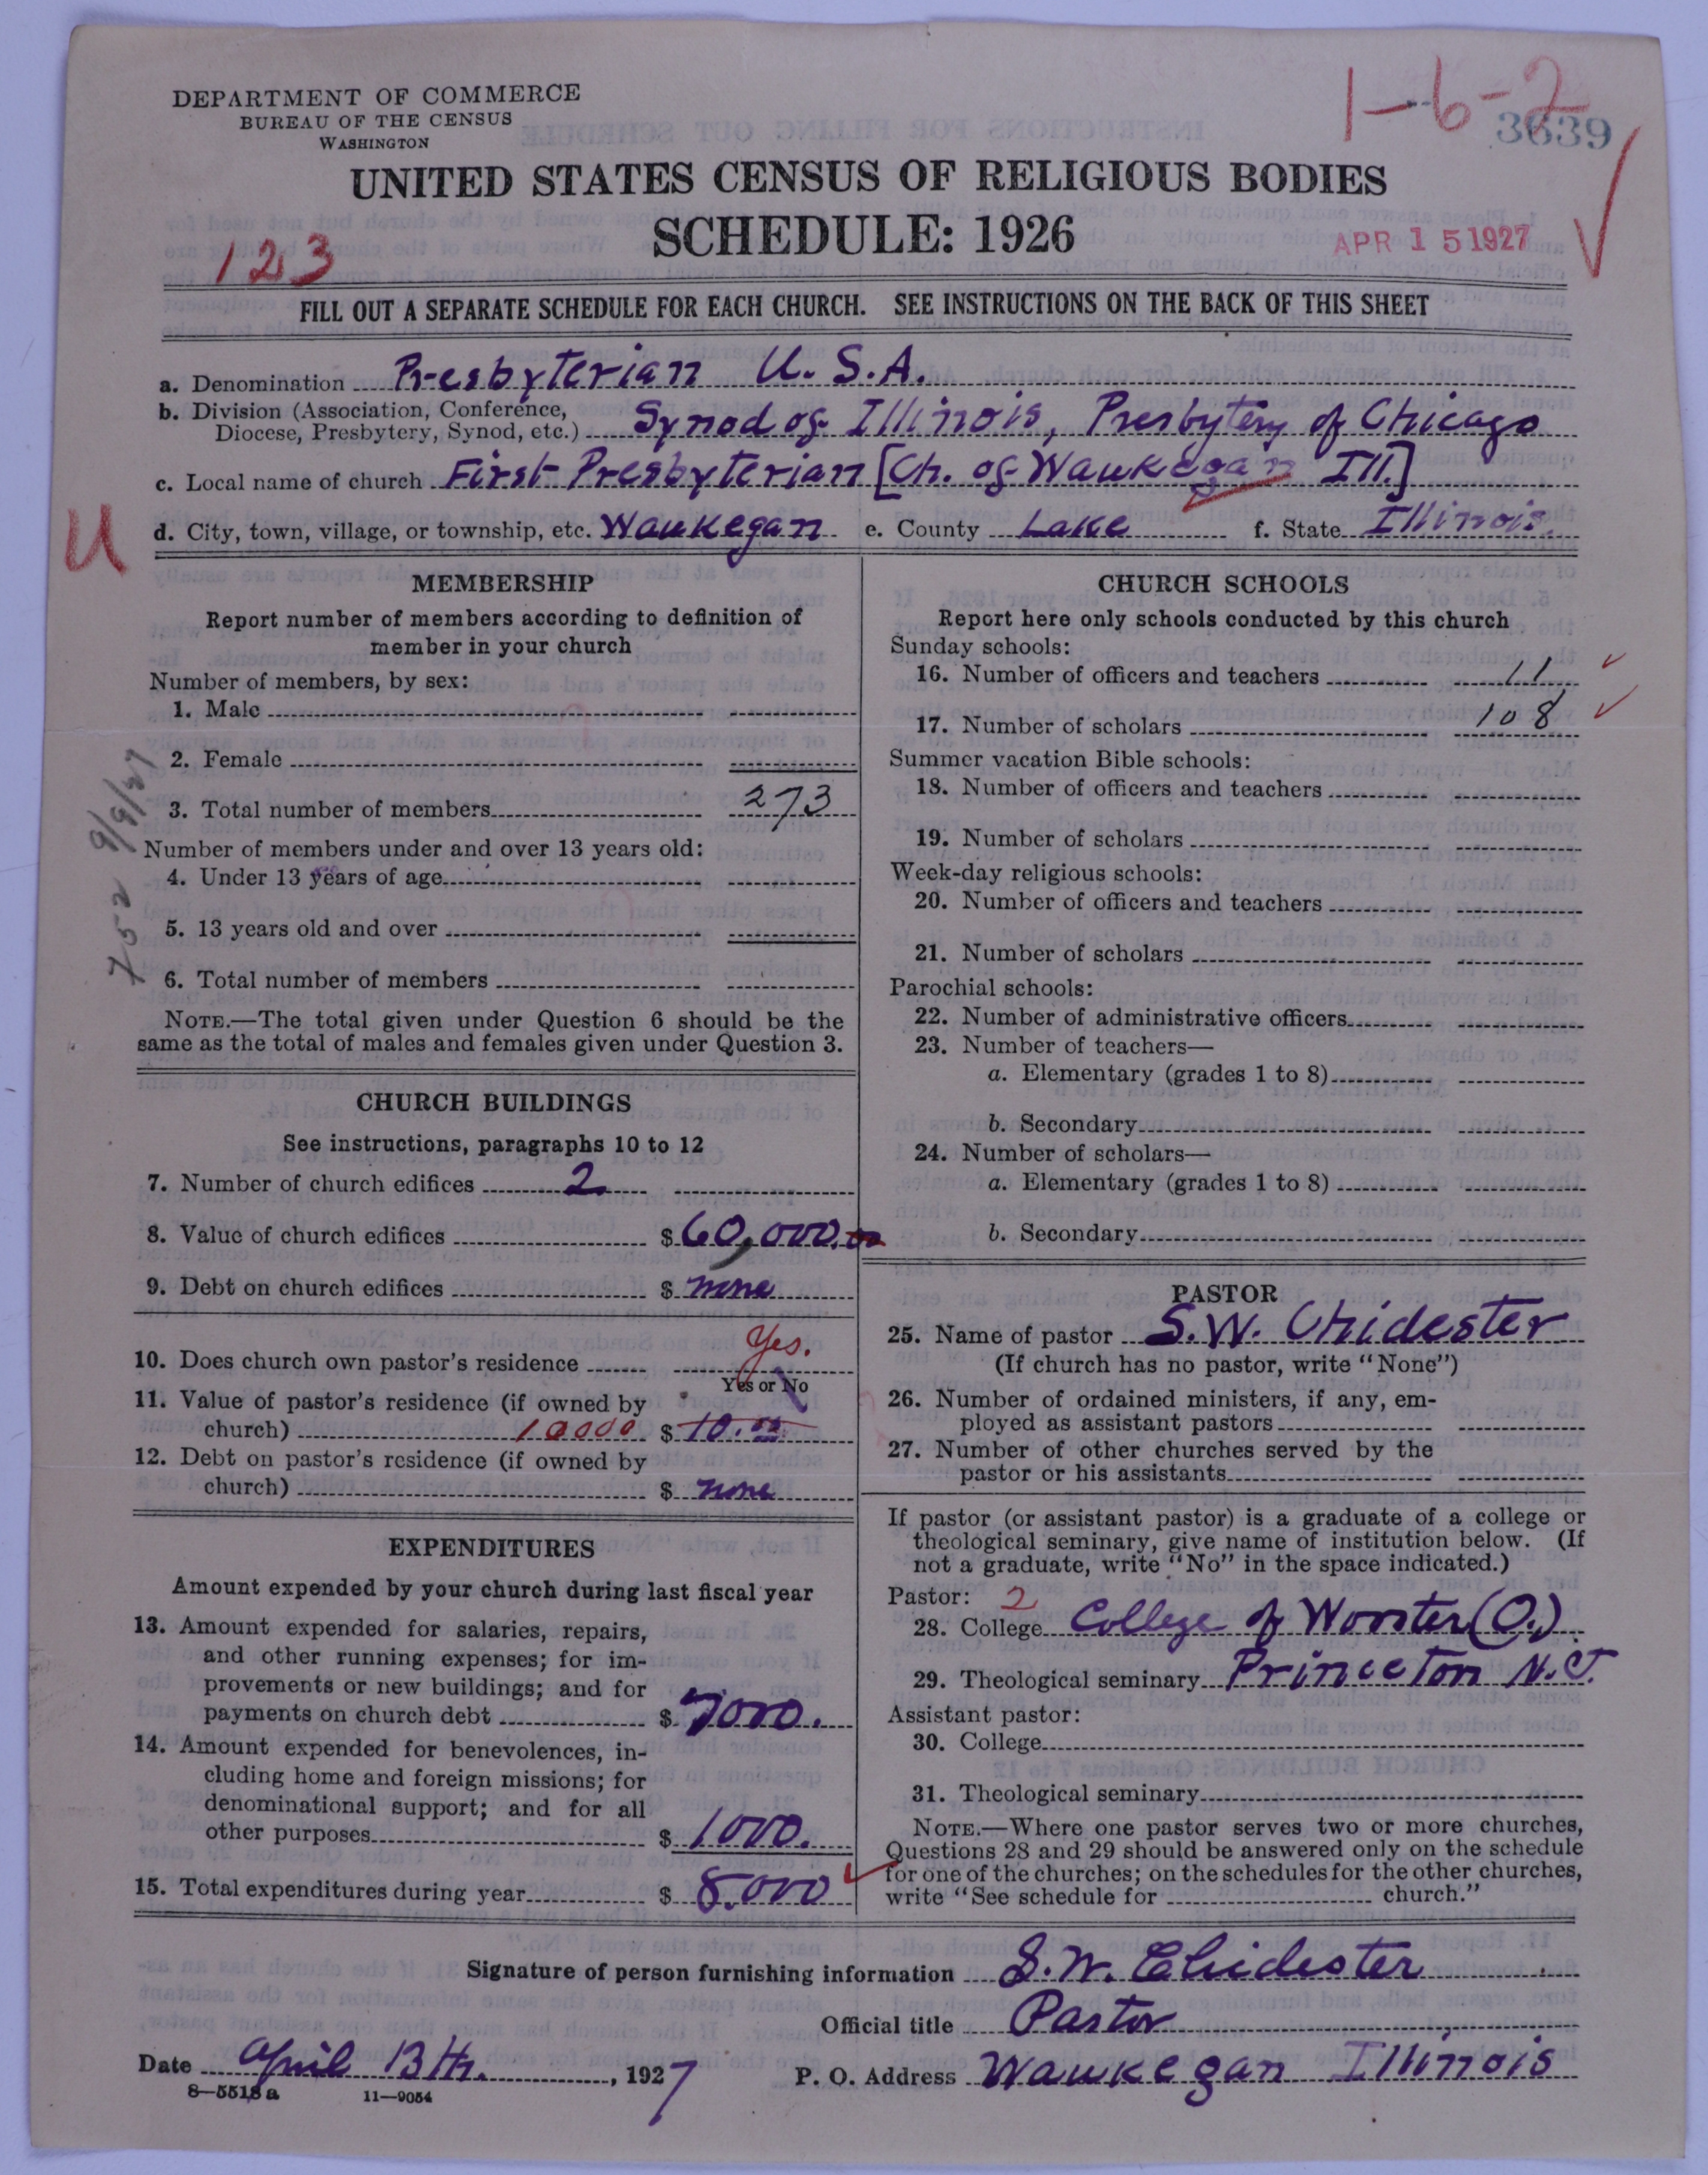 DEPARTMENT OF COMMERCE
BUREAU OF THE CENSUS
WASHINGTON
1-6-2
3639
UNITED STATES CENSUS OF RELIGIOUS BODIES
SCHEDULE: 1926
123
APR 15 1927
FILL OUT A SEPARATE SCHEDULE FOR EACH CHURCH. SEE INSTRUCTIONS ON THE BACK OF THIS SHEET
a. Denomination Presbyterian U.S.A.
b. Division (Association, Conference,
Diocese, Presbytery, Synod, etc.) Synod of Illinois, Presbytery of Chicago
c. Local name of church First Presbyterian [Ch. of Waukegan Ill.]
U
d. City, town, village, or township, etc. Waukegan e. County Lake f. State Illinois.
MEMBERSHIP
Report number of members according to definition of
member in your church
Number of members, by sex:
1. Male
2. Female
3. Total number of members 273
Number of members under and over 13 years old:
4. Under 13 years of age
5. 13 years old and over
6. Total number of members
NOTE.—The total given under Question 6 should be the
same as the total of males and females given under Question 3.
CHURCH BUILDINGS
See instructions, paragraphs 10 to 12
7. Number of church edifices 2
8. Value of church edifices $ 60,000.00
9. Debt on church edifices $ none
10. Does church own pastor's residence Yes.
Yes or No
11. Value of pastor's residence (if owned by
church) 10000 $ 10.00
12. Debt on pastor's residence (if owned by
church) $ none
EXPENDITURES
Amount expended by your church during last fiscal year
13. Amount expended for salaries, repairs,
and other running expenses; for im-
provements or new buildings; and for
payments on church debt $ 7000.
14. Amount expended for benevolences, in-
cluding home and foreign missions; for
denominational support; and for all
other purposes $ 1000.
15. Total expenditures during year $ 8.000
CHURCH SCHOOLS
Report here only schools conducted by this church
Sunday schools:
16. Number of officers and teachers 11
17. Number of scholars 108
Summer vacation Bible schools:
18. Number of officers and teachers
19. Number of scholars
Week-day religious schools:
20. Number of officers and teachers
21. Number of scholars
Parochial schools:
22. Number of administrative officers
23. Number of teachers—
a. Elementary (grades 1 to 8)
b. Secondary
24. Number of scholars—
a. Elementary (grades 1 to 8)
b. Secondary
PASTOR
25. Name of pastor S.W. Chidester
(If church has no pastor, write "None")
26. Number of ordained ministers, if any, em-
ployed as assistant pastors
27. Number of other churches served by the
pastor or his assistants
If pastor (or assistant pastor) is a graduate of a college or
theological seminary, give name of institution below. (If
not a graduate, write "No" in the space indicated.)
Pastor: 2
28. College College of Wooster (O.)
29. Theological seminary Princeton N.J.
Assistant pastor:
30. College
31. Theological seminary
NOTE.—Where one pastor serves two or more churches,
Questions 28 and 29 should be answered only on the schedule
for one of the churches; on the schedules for the other churches,
write "See schedule for church."
Signature of person furnishing information S.W. Chidester
Official title Pastor
Date April 13th, 1927 P. O. Address Waukegan Illinois
8—5518 a 11—9054